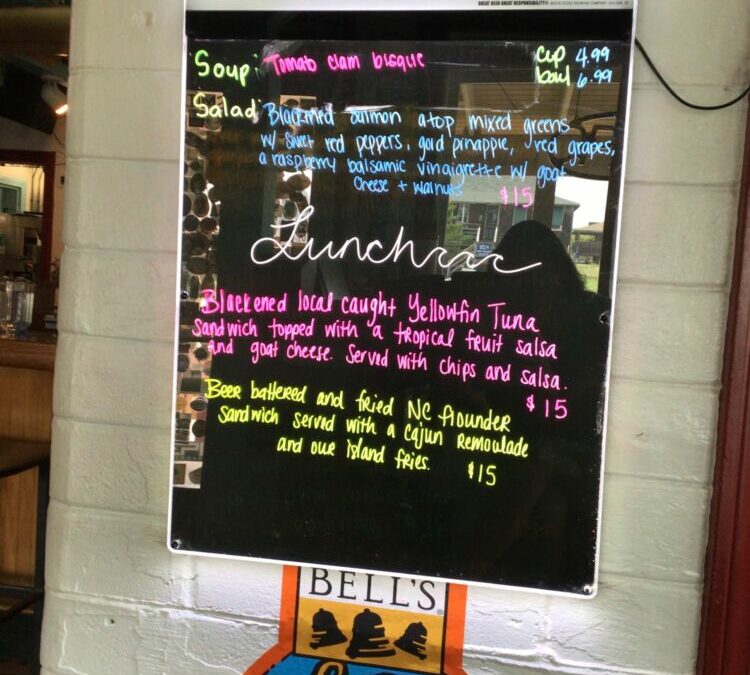 GREAT BEER GREAT RESPONSIBILITY®
Soup: Tomato clam bisque
cup 4.99
bowl 6.99
Salad: Blackened salmon atop mixed greens
w/ sweet red peppers, gold pinapple, red grapes,
a raspberry balsamic vinaigrette w/ goat
cheese + walnuts $15
Lunch
Blackened local caught Yellowfin Tuna
Sandwich topped with a tropical fruit salsa
and goat cheese. Served with chips and salsa.
$15
Beer battered and fried NC flounder
Sandwich served with a Cajun Remoulade
and our Island fries. $15
BELL'S